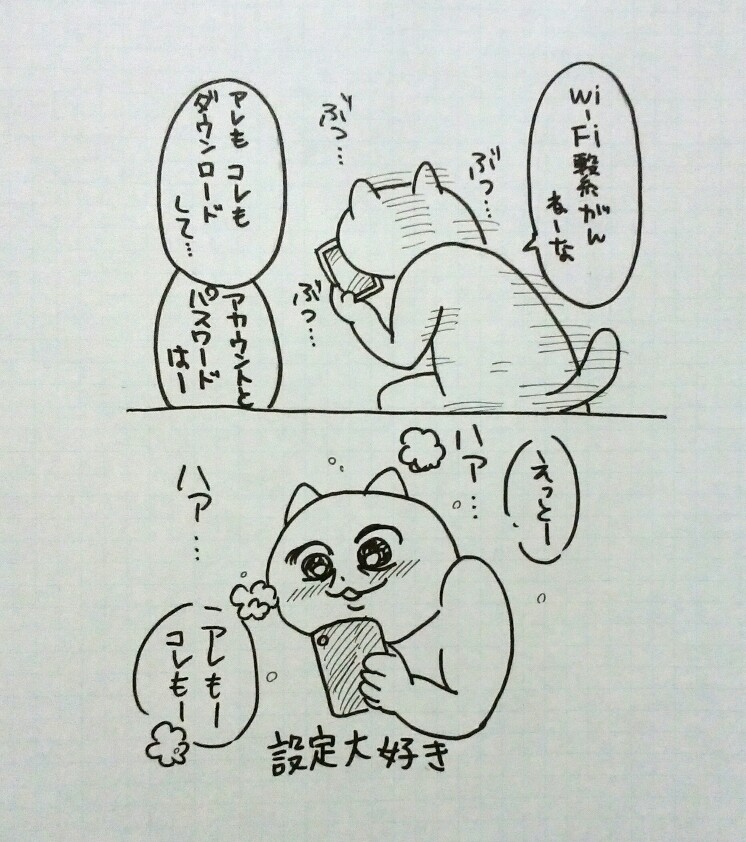 Wi-Fi繋がん
もーな
ぶつ…
ぶつ…
ぶつ…
アレも コレも
ダウンロード
して…
アカウントと
パスワード
はー
えっとー
ハァ…
ハァ…
アレもー
コレもー
設定大好き